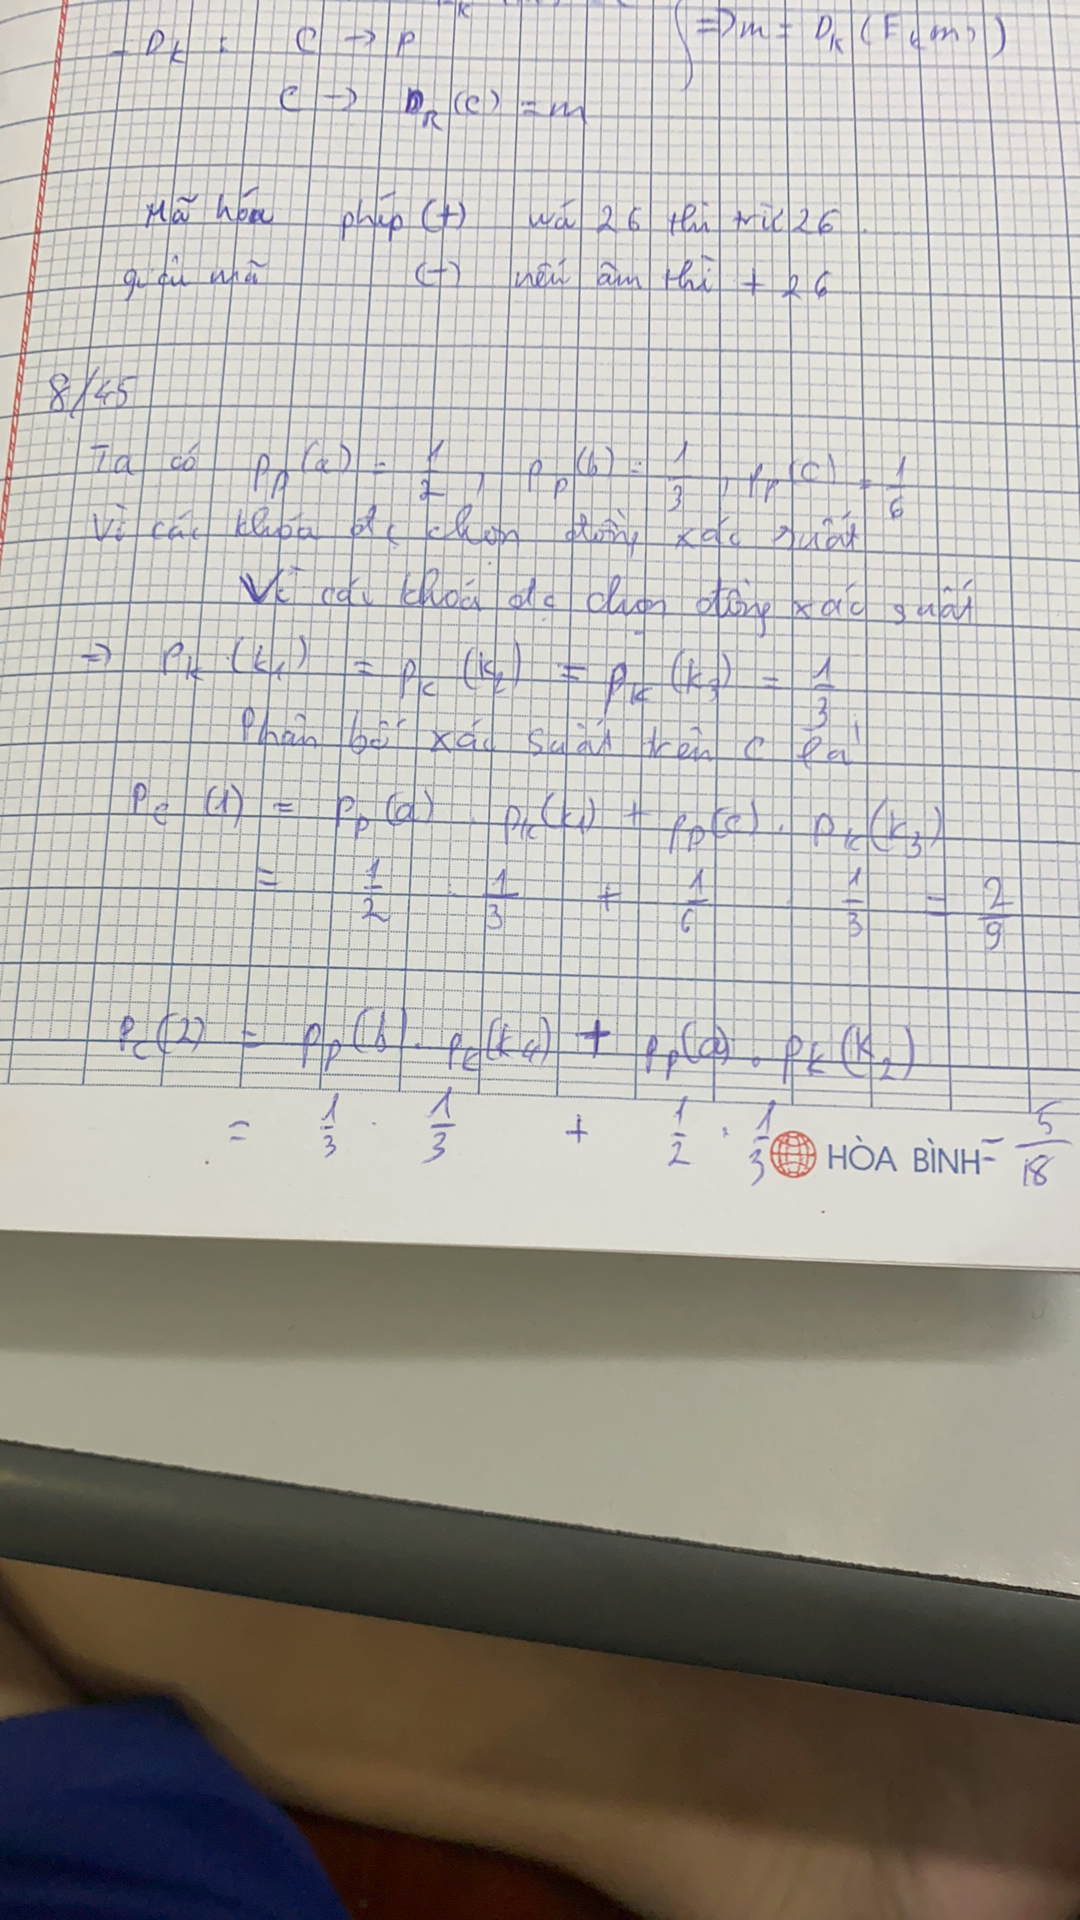 - D_K : C → P } ⇒ m = D_K (E (m))
C → D_K (C) = m
Mã hóa phép (+) wá 26 thì trừ 26.
giải mã (-) nếu âm thì + 26
8/45
Ta có P_P(a) = 1/2, P_P(b) = 1/3, P_P(c) = 1/6
Vì các khóa đc chọn đồng xác suất
Vì các khoá đc chọn đồng xác suất
=> P_K (k_1) = P_K (k_2) = P_K (k_3) = 1/3
Phân bố xác suất trên C là
P_C (1) = P_P(a) . P_K(k_1) + P_P(c) . P_K(k_3)
= 1/2 . 1/3 + 1/6 1/3 = 2/9
P_C(2) = P_P(b) . P_K(k_1) + P_P(a) . P_K(k_2)
= 1/3 . 1/3 + 1/2 . 1/3 = 5/18
HÒA BÌNH